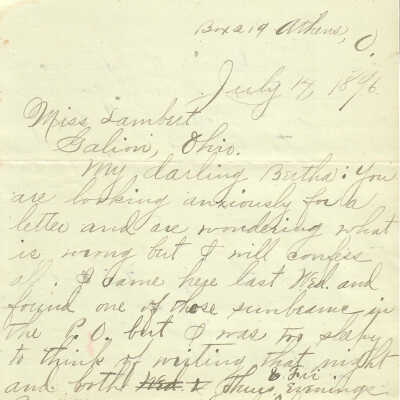 Box 219 Athens, O.
July 14, 1896.
Miss Lambert
Galion, Ohio.
My darling Bertha: You
are looking anxiously for a
letter and are wondering what
is wrong but I will confess
all. I came here last Wed. and
found one of those sunbeams in
the P.O. but I was too sleepy
to think of writing that night
and both Wed. & Thurs & Fri Evenings